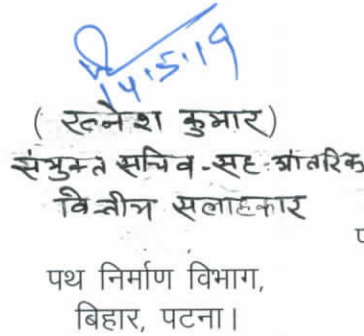 14.5.19
( रत्नेश कुमार )
संयुक्त सचिव-सह-आंतरिक
वित्तीय सलाहकार
पथ निर्माण विभाग,
बिहार, पटना।